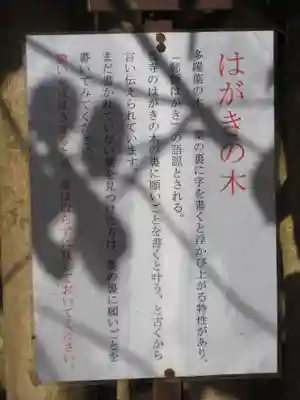 はがきの木
多羅葉の木 葉の裏に字を書くと浮かび上がる特性があり、
「郵便はがき」の語源とされる。
寺のはがきの木の葉の裏に願いごとを書くと叶う、と古くから
言い伝えられています
まだ書かれていない葉を見つけた方は、葉の裏に願いごとを
書いてみてください。
願いを書きましたら、葉は取らずに残しておいてください。